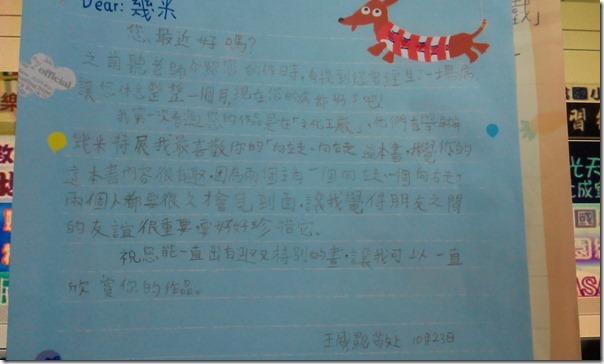 Dear: 幾米
您最近好嗎?
之前聽老師介紹您的作品時,有提到您曾經生了一場病
讓您休息整整一個月,現在您的病都好了吧!
我第一次看到您的作品是在「文化工廠」,他們有舉辦
幾米特展我最喜歡你的「向左走、向右走」這本書,我覺得你的
這本書內容很有趣,因為兩個主角一個向左走,一個向右走,
兩個人都要很久才會見到面,讓我覺得朋友之間
的友誼很重要,要好好珍惜它。
祝您能一直出有趣又特別的書,讓我可以一直
欣賞你的作品。
10月23日
official